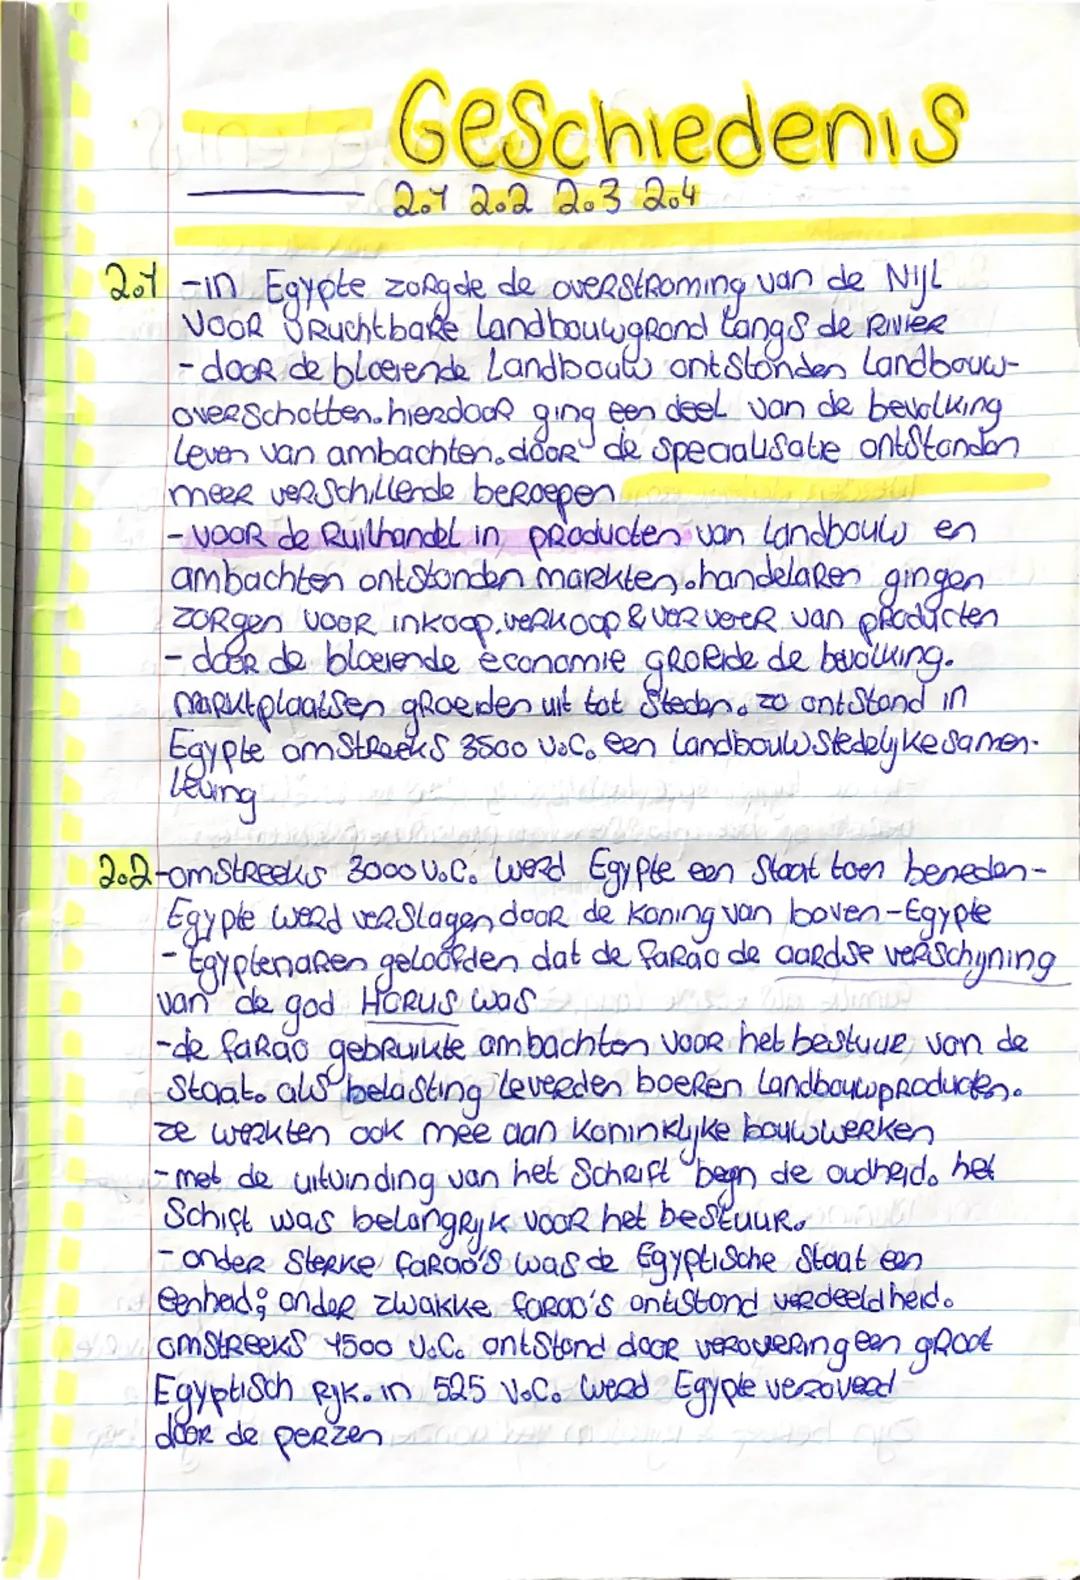 Geschiedenis
2.1 2.2 2.3 2.4
2.1 -in Egypte zorgde de overstroming van de Nijl
voor vruchtbare landbouwgrond langs de rivier
- door de bloeiende landbouw ontstonden landbouw-
overschotten. hierdoor ging een deel van de bevolking
leven van ambachten. door de specialisatie ontstonden
meer verschillende beroepen
- voor de Ruilhandel in producten van landbouw en
ambachten ontstonden markten. handelaren gingen
zorgen voor inkoop, verkoop & vervoer van producten
- door de bloeiende economie groeide de bevolking.
marktplaatsen groeiden uit tot steden. zo ontstond in
Egypte omstreeks 3500 v.C. een landbouwstedelijke samen-
leving
2.2 -omstreeks 3000 v.C. werd Egypte een staat toen beneden-
Egypte werd verslagen door de koning van boven-Egypte
- Egyptenaren geloofden dat de farao de aardse verschijning
van de god HORUS was
-de farao gebruikte ambachten voor het bestuur van de
staat. als belasting leverden boeren landbouwproducten.
ze werkten ook mee aan koninklijke bouwwerken
- met de uitvinding van het schrift begn de oudheid. het
Schift was belangrijk voor het bestuur.
- onder sterke farao's was de Egyptische staat een
eenheid; onder zwakke farao's ontstond verdeeldheid.
omstreeks 1500 v.C. ontstond door verovering een groot
Egyptisch rijk. in 525 v.C. werd Egypte veroverd
door de perzen